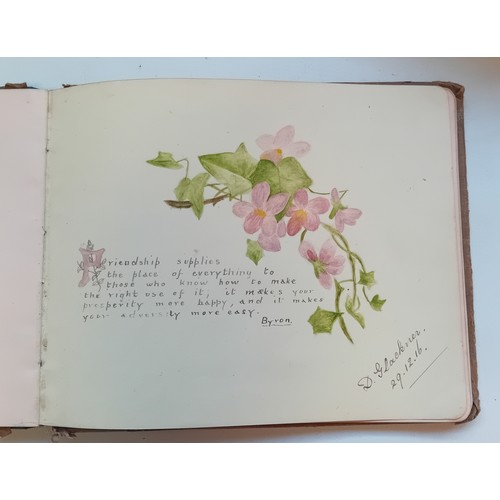 Friendship supplies
the place of everything to
those who know how to make
the right use of it, it makes your
prosperity more happy, and it makes
your adversity more easy.
Byron.
D. Glackner.
29.12.16.